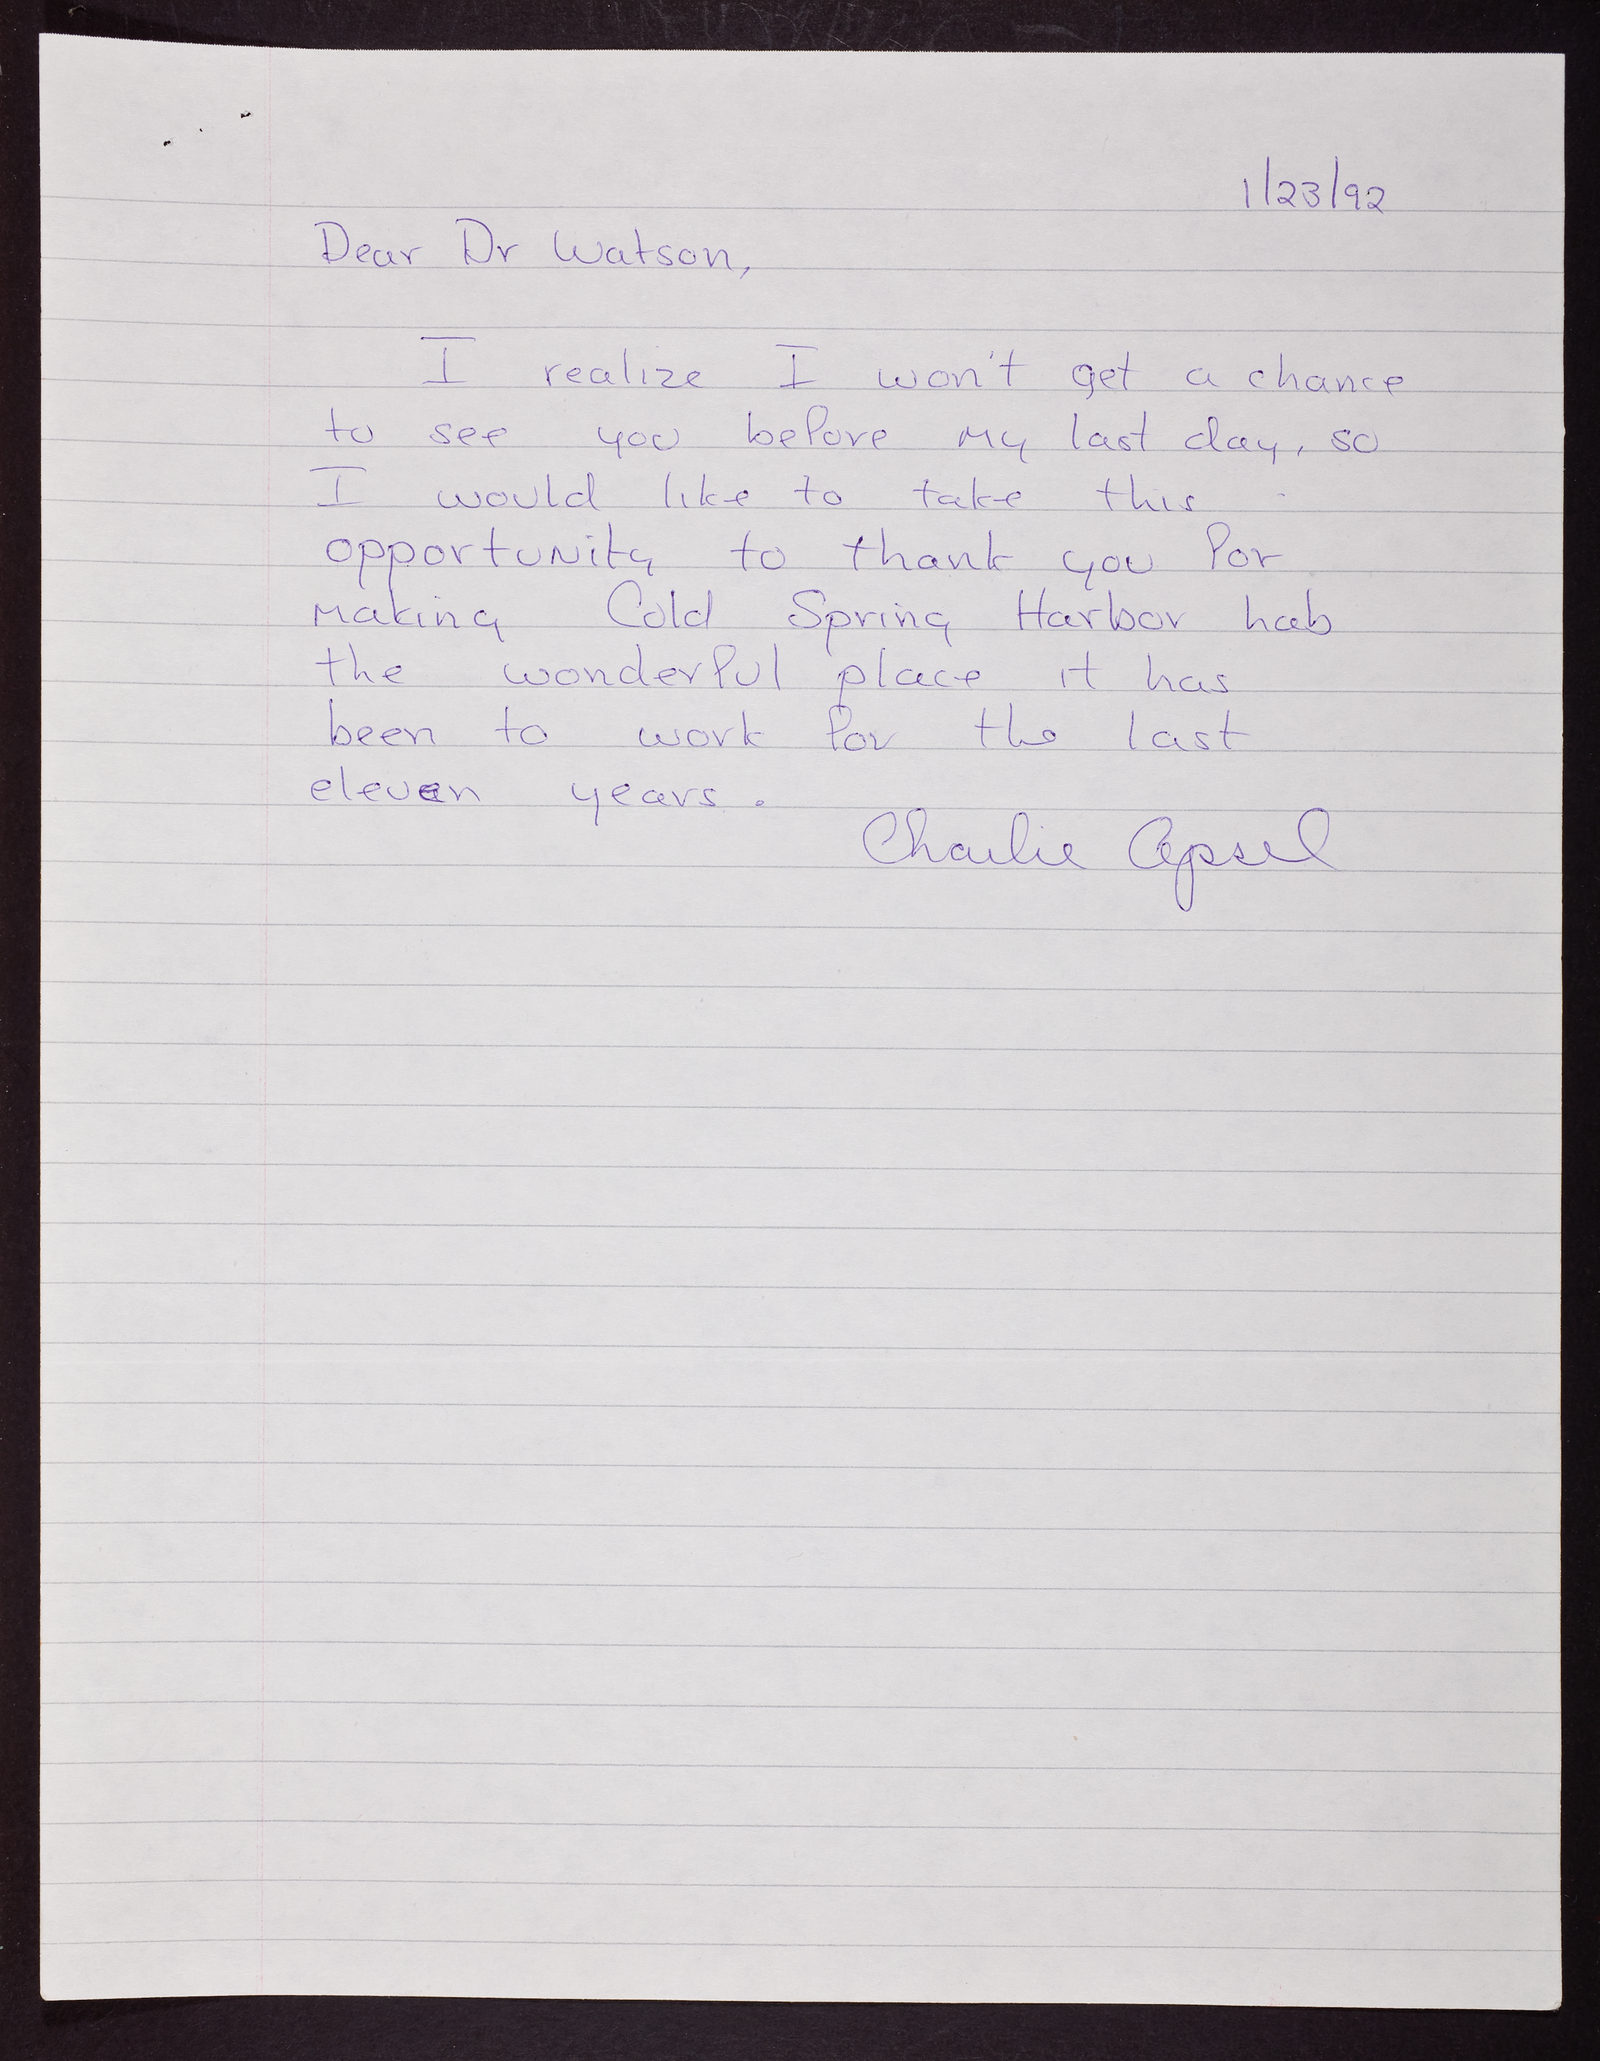 1/23/92
Dear Dr Watson,
I realize I won't get a chance
to see you before my last day, so
I would like to take this
opportunity to thank you for
making Cold Spring Harbor Lab
the wonderful place it has
been to work for the last
eleven years.
Charlie Apsel